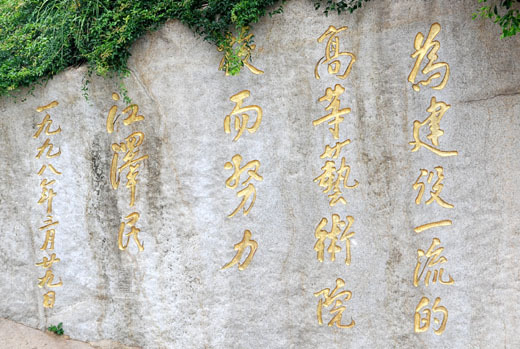 為建設一流的
高等藝術院
校而努力
江澤民
一九九八年三月廿九日